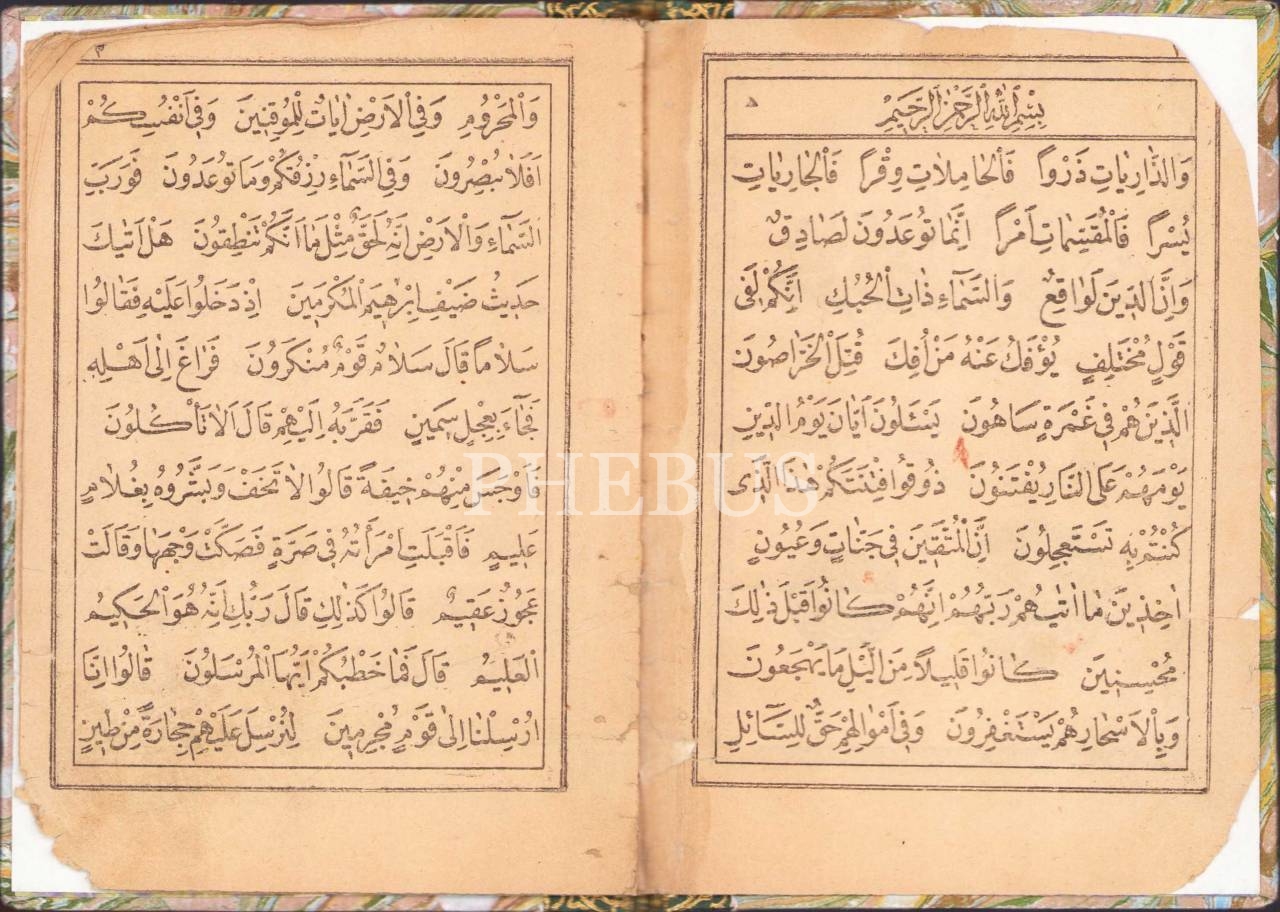 بِسْمِ اللهِ الرَّحْمٰنِ الرَّحِيمِ
وَالذَّارِيَاتِ ذَرْوًا فَالْحَامِلَاتِ وِقْرًا فَالْجَارِيَاتِ
يُسْرًا فَالْمُقَسِّمَاتِ اَمْرًا اِنَّمَا تُوعَدُونَ لَصَادِقٌ
وَاِنَّ الدِّينَ لَوَاقِعٌ وَالسَّمَٓاءِ ذَاتِ الْحُبُكِ اِنَّكُمْ لَفِى
قَوْلٍ مُخْتَلِفٍ يُؤْفَكُ عَنْهُ مَنْ اُفِكَ قُتِلَ الْخَرَّاصُونَ
الَّذِينَ هُمْ فِى غَمْرَةٍ سَاهُونَ يَسْئَلُونَ اَيَّانَ يَوْمُ الدِّينِ
يَوْمَ هُمْ عَلَى النَّارِ يُفْتَنُونَ ذُوقُوا فِتْنَتَكُمْ هٰذَا الَّذِى
كُنْتُمْ بِهِ تَسْتَعْجِلُونَ اِنَّ الْمُتَّقِينَ فِى جَنَّاتٍ وَعُيُونٍ
اٰخِذِينَ مَٓا اٰتٰيهُمْ رَبُّهُمْ اِنَّهُمْ كَانُوا قَبْلَ ذٰلِكَ
مُحْسِنِينَ كَانُوا قَلِيلًا مِنَ الَّيْلِ مَا يَهْجَعُونَ
وَبِالْاَسْحَارِ هُمْ يَسْتَغْفِرُونَ وَفِى اَمْوَالِهِمْ حَقٌّ لِلسَّٓائِلِ
٣
وَالْمَحْرُومِ وَفِى الْاَرْضِ اٰيَاتٌ لِلْمُوقِنِينَ وَفِى اَنْفُسِكُمْ
اَفَلَا تُبْصِرُونَ وَفِى السَّمَٓاءِ رِزْقُكُمْ وَمَا تُوعَدُونَ فَوَرَبِّ
السَّمَٓاءِ وَالْاَرْضِ اِنَّهُ لَحَقٌّ مِثْلَ مَٓا اَنَّكُمْ تَنْطِقُونَ هَلْ اَتٰيكَ
حَدِيثُ ضَيْفِ اِبْرٰهِيمَ الْمُكْرَمِينَ اِذْ دَخَلُوا عَلَيْهِ فَقَالُوا
سَلَامًا قَالَ سَلَامٌ قَوْمٌ مُنْكَرُونَ فَرَاغَ اِلٰى اَهْلِهِ
فَجَٓاءَ بِعِجْلٍ سَمِينٍ فَقَرَّبَهُ اِلَيْهِمْ قَالَ اَلَا تَأْكُلُونَ
فَاَوْجَسَ مِنْهُمْ خِيفَةً قَالُوا لَا تَخَفْ وَبَشَّرُوهُ بِغُلَامٍ
عَلِيمٍ فَاَقْبَلَتِ امْرَاَتُهُ فِى صَرَّةٍ فَصَكَّتْ وَجْهَهَا وَقَالَتْ
عَجُوزٌ عَقِيمٌ قَالُوا كَذٰلِكِ قَالَ رَبُّكِ اِنَّهُ هُوَ الْحَكِيمُ
الْعَلِيمُ قَالَ فَمَا خَطْبُكُمْ اَيُّهَا الْمُرْسَلُونَ قَالُوا اِنَّا
اُرْسِلْنَا اِلٰى قَوْمٍ مُجْرِمِينَ لِنُرْسِلَ عَلَيْهِمْ حِجَارَةً مِنْ طِينٍ
PHEBUS